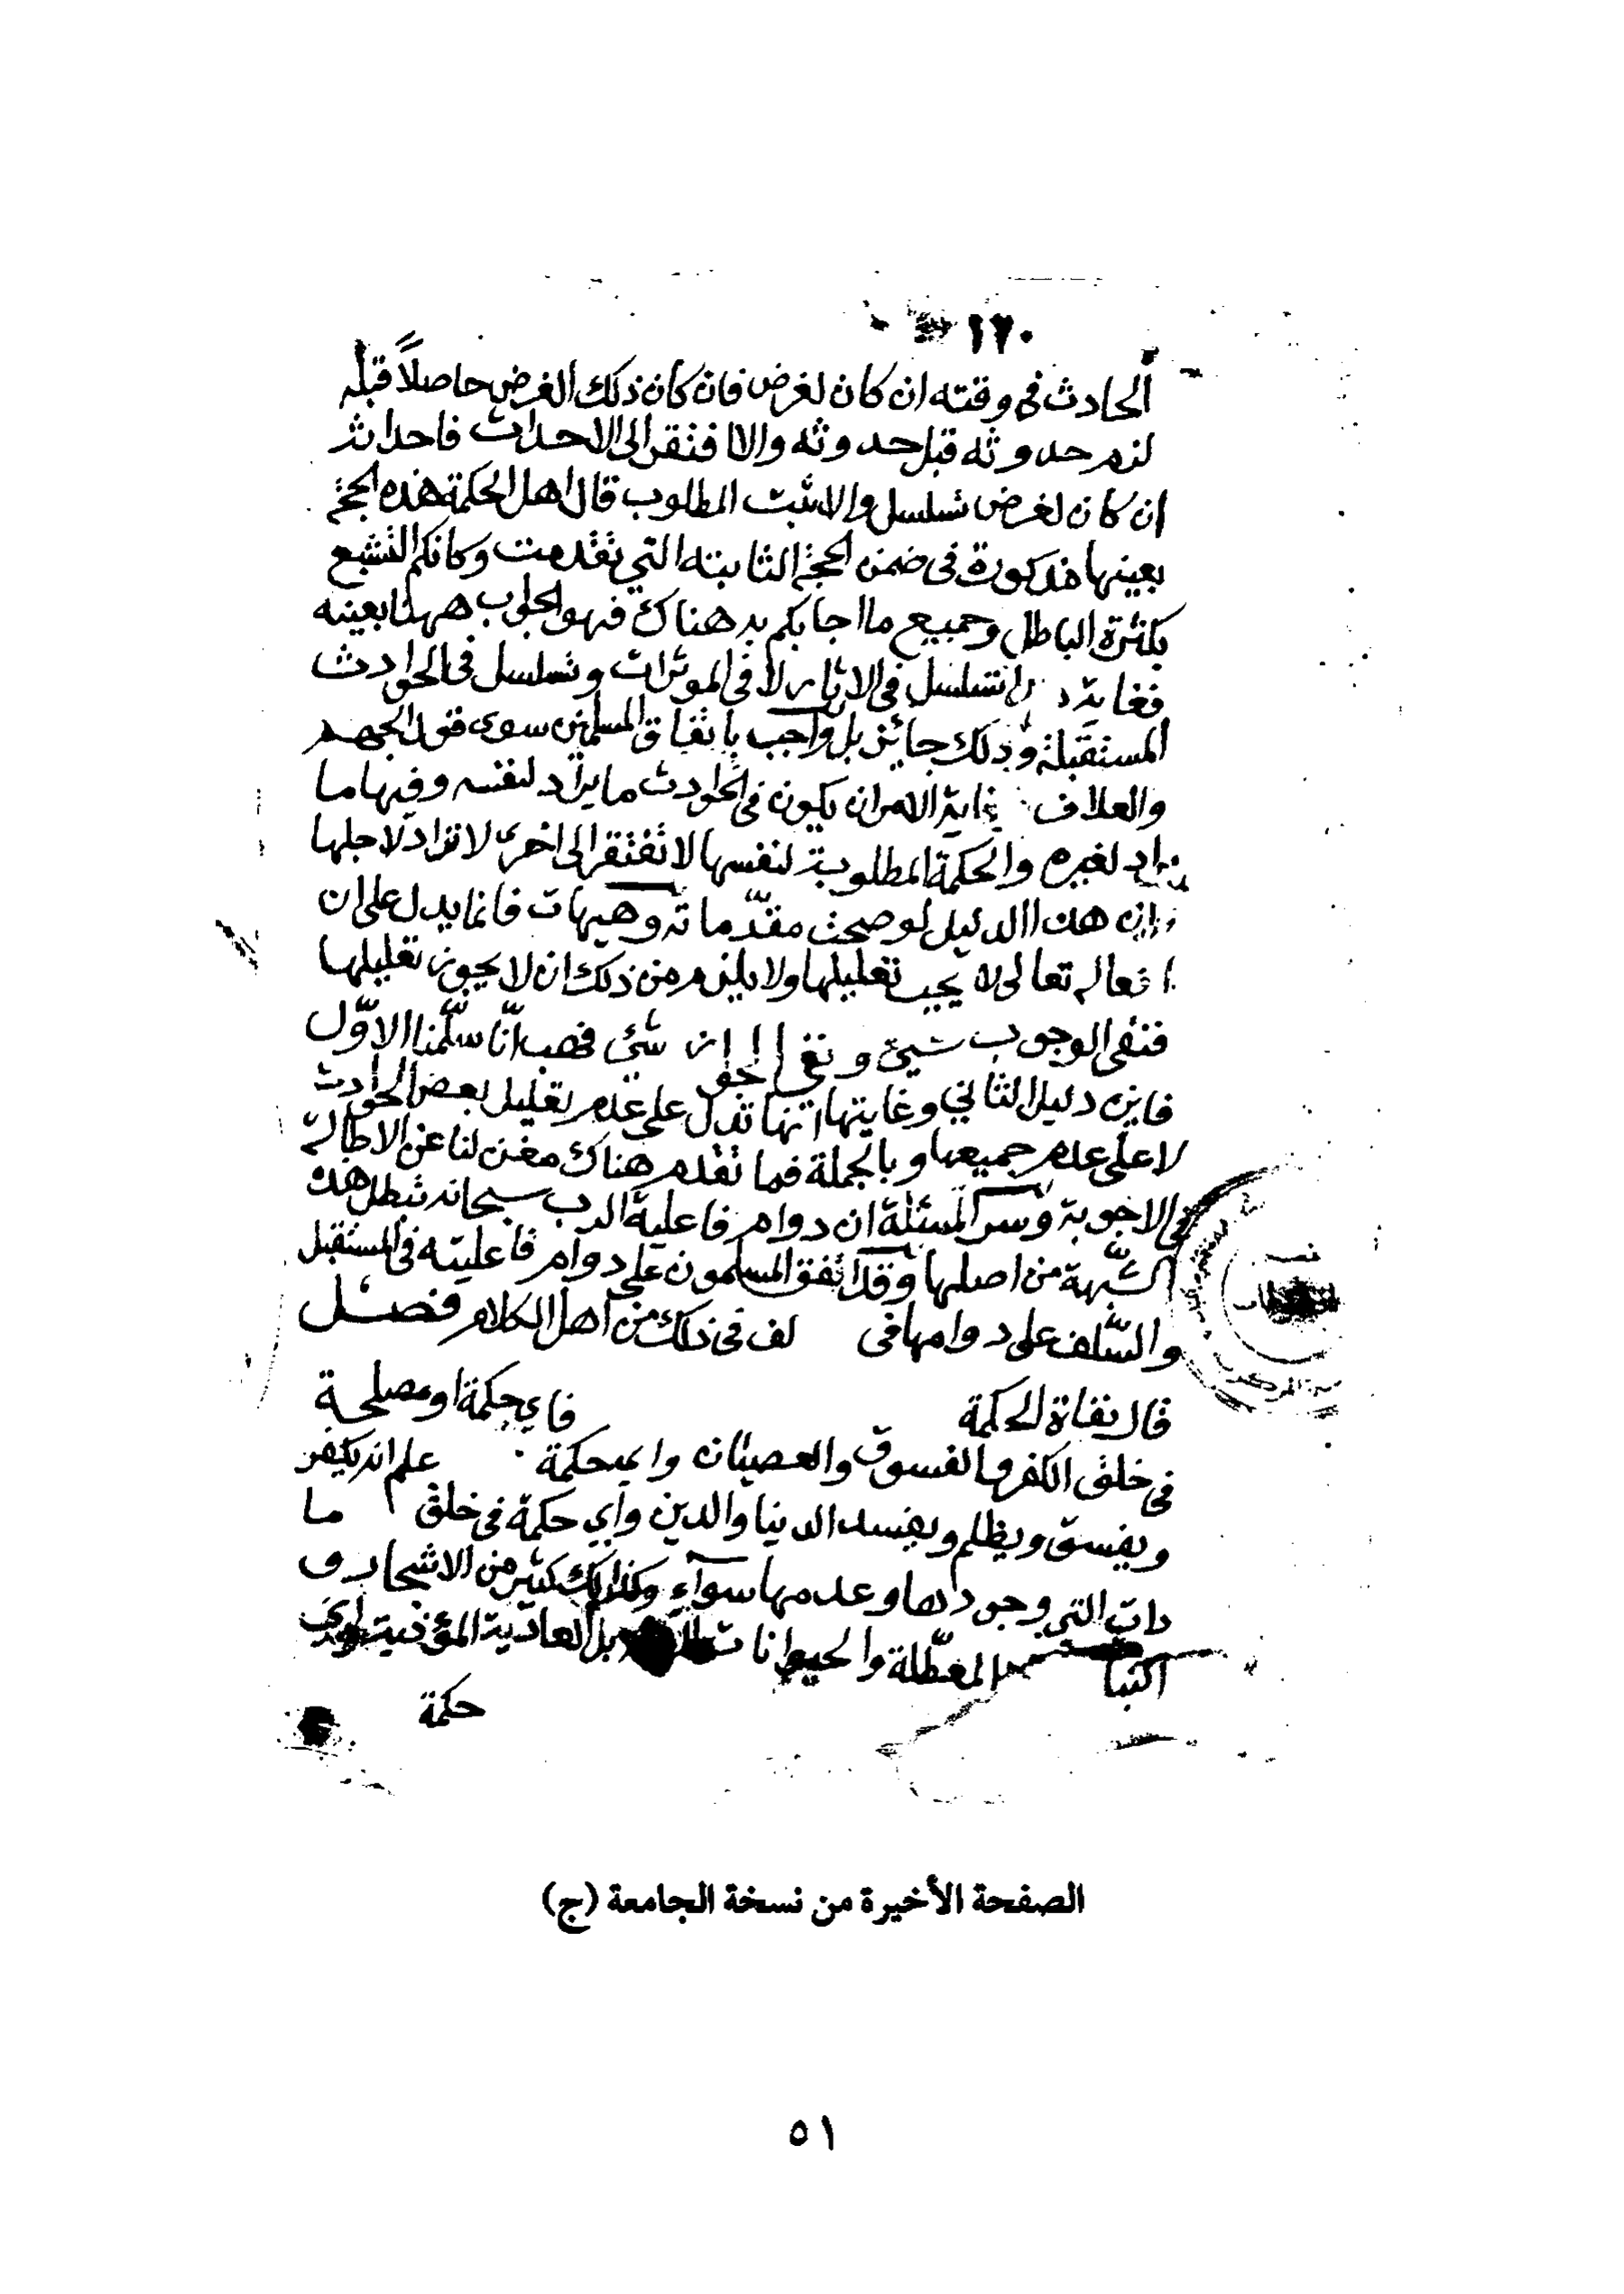 ١٢٠
الحادث فى وقته ان كان لغرض فان كان ذلك الغرض حاصلاً قبله
لزم حدوثه قبل حدوثه والا افتقر الى الاحداث فاحداثه
ان كان لغرض تسلسل والا ثبت المطلوب قال اهل الحكمة هذه الحجة
بعينها مذكورة فى ضمن الحجة الثانية التي تقدمت وكانكم التشبع
بكثرة الباطل وجميع ما اجابكم به هناك فهو الجواب ههنا بعينه
فغايته التسلسل فى الاثار لا فى الموثرات وتسلسل فى الحوادث
المستقبلة وذلك جائز بل واجب باتفاق المسلمين سوى قول الجهم
والعلاف غاية الامر ان يكون فى الحوادث ما يراد لنفسه وفيها ما
يراد لغيره والحكمة المطلوبة لنفسها لا تفتقر الى اخرى لا تراد لاجلها
وان هذا الدليل لو صحت مقدّماته وهيهات فانما يدل على ان
افعاله تعالى لا يجب تعليلها ولا يلزم من ذلك ان لا يجوز تعليلها
فنفى الوجوب شيئ ونفي الجواز شئ فهب انّا سلّمنا الاوّل
فاين دليل الثاني وغايتها انها تدل على عدم تعليل بعض الحوادث
لا على عدم جميعها وبالجملة فما تقدم هناك مغن لنا عن الاطالة
فى الاجوبة وسر المسئلة ان دوام فاعلية الرب سبحانه تبطل هذه
الشّبهة من اصلها وقد اتفق المسلمون على دوام فاعليته فى المستقبل
والسّلف على دوامها فى لف فى ذلك من اهل الكلام فصل
قال نفاة الحكمة فاي حكمة او مصلحة
فى خلق الكفر والفسوق والعصيان واي حكمة علم انه يكفر
ويفسق ويظلم ويفسد الدنيا والدين واي حكمة فى خلق ما
دات التي وجودها وعدمها سوآء وكذلك كثير من الاشجار و
المعطّلة والحيوانات بل العادية المؤذية واي
حكمة
الصفحة الأخيرة من نسخة الجامعة (ج)
٥١